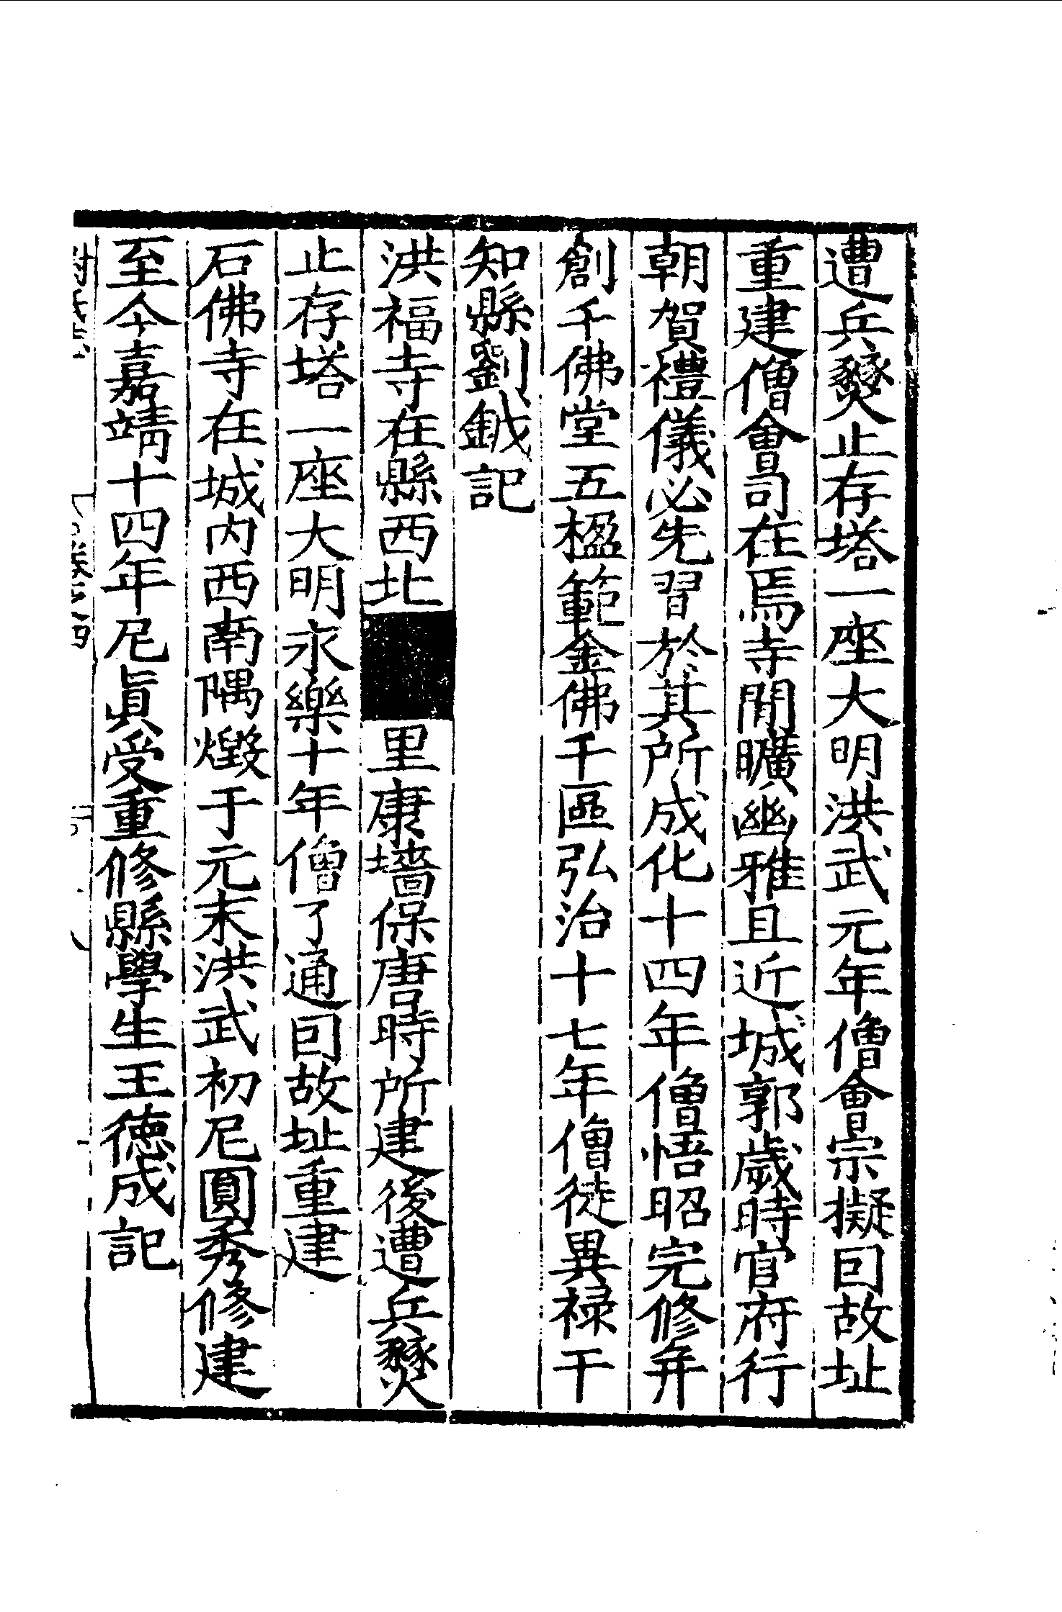 遭兵燹止存塔一座大明洪武元年僧會宗擬回故址
重建僧會司在焉寺閒曠幽雅且近城郭歲時官府行
朝賀禮儀必先習於其所成化十四年僧悟昭完修并
創千佛堂五楹範金佛千區弘治十七年僧徒異祿干
知縣劉鉞記
洪福寺在縣西北
里康墻保唐時所建後遭兵燹
止存塔一座大明永樂十年僧了通回故址重建
石佛寺在城內西南隅燬于元末洪武初尼圓秀修建
至今嘉靖十四年尼真受重修縣學生王德成記
卷之四